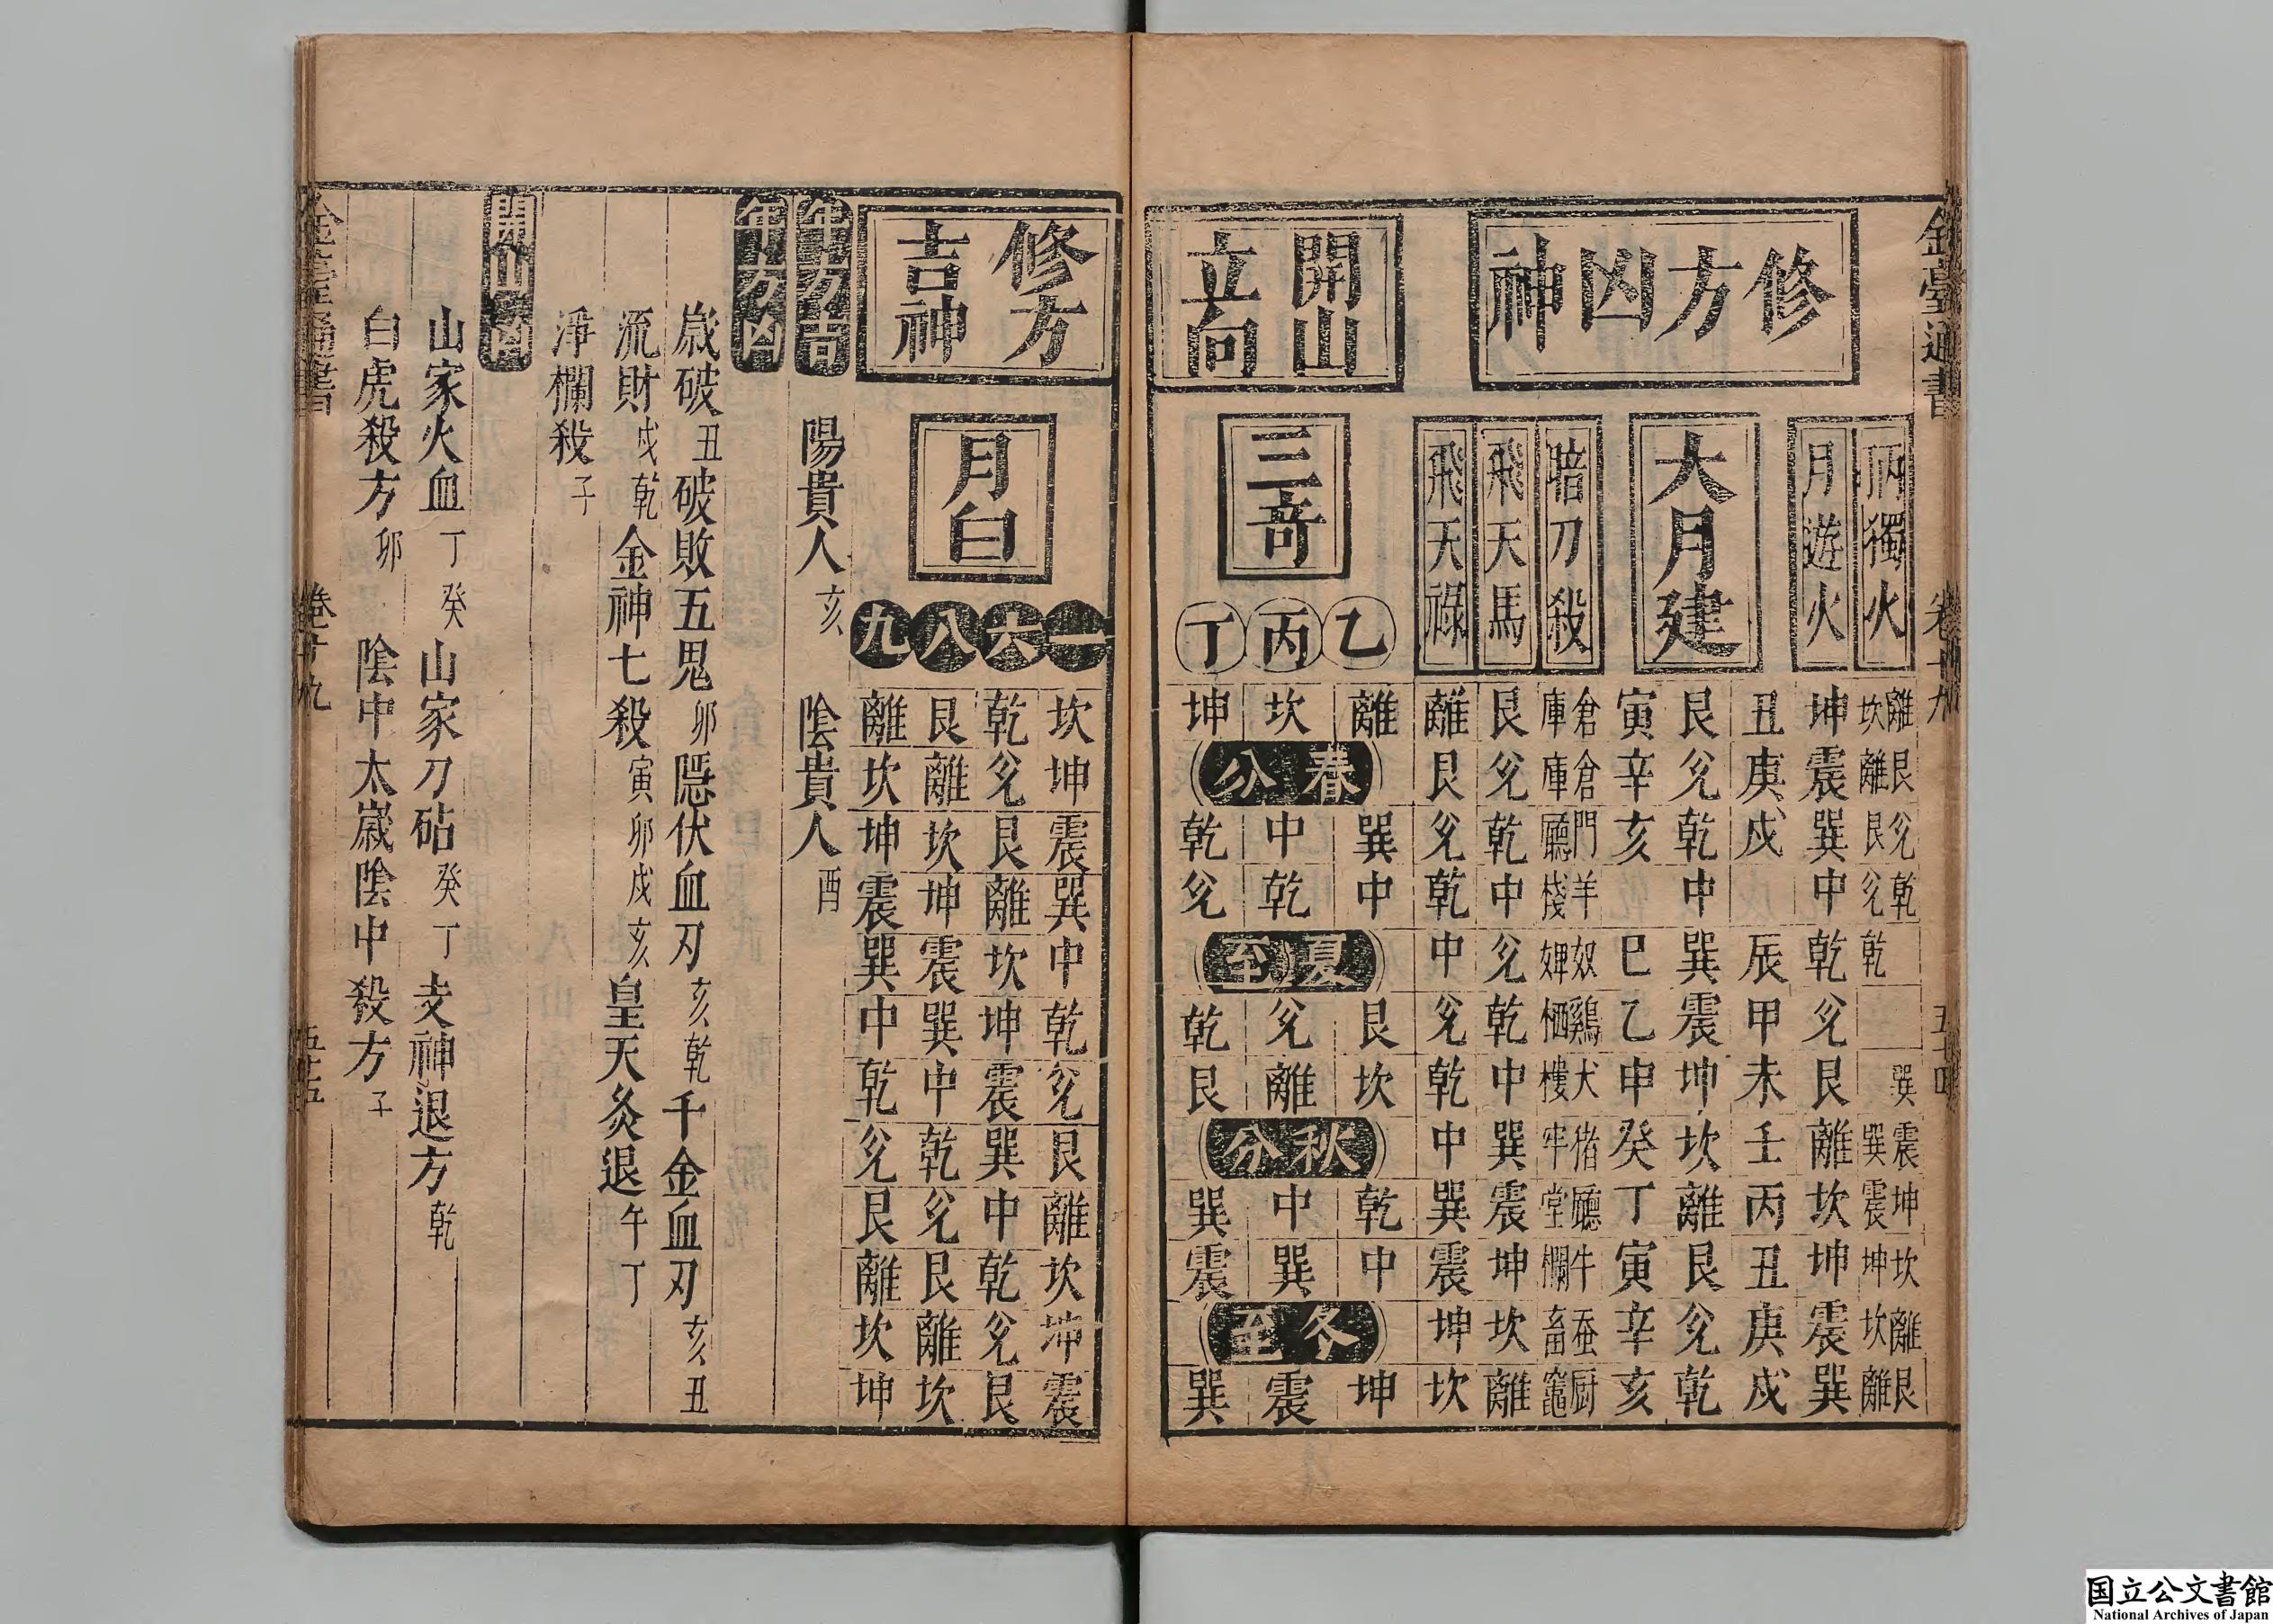 金臺通書 卷十九 五十四
修方凶神
丙獨火 離坎 艮離 兊艮 乾兊 乾 巽 震巽 坤震 坎坤 離坎 艮離
月遊火 坤 震 巽 中 乾 兊 艮 離 坎 坤 震 巽
大月建
丑 庚 戌 辰 甲 未 壬 丙 丑 庚 戌
艮 兊 乾 中 巽 震 坤 坎 離 艮 兊 乾
寅 辛 亥 巳 乙 申 癸 丁 寅 辛 亥
暗刀殺 倉庫 倉庫 門廳 羊棧 奴婢 鷄栖 犬樓 猪牢 廳堂 牛欄 蚕畜 厨竈
飛天馬 艮 兊 乾 中 兊 乾 中 巽 震 坤 坎 離
飛天祿 離 艮 兊 乾 中 兊 乾 中 巽 震 坤 坎
開山立向
三奇
乙 丙 丁
離 坎 坤
春分
巽 中 乾
中 乾 兊
夏至
艮 兊 乾
坎 離 艮
秋分
乾 中 巽
中 巽 震
冬至
坤 震 巽
修方吉神
月白
一 坎 坤 震 巽 中 乾 兊 艮 離 坎 坤 震
六 乾 兊 艮 離 坎 坤 震 巽 中 乾 兊 艮
八 艮 離 坎 坤 震 巽 中 乾 兊 艮 離 坎
九 離 坎 坤 震 巽 中 乾 兊 艮 離 坎 坤
年方吉 陽貴人亥 陰貴人酉
年方凶
歲破丑 破敗五鬼卯 隱伏血刃亥乾 千金血刃亥丑
流財戌乾 金神七殺寅卯戌亥 皇天灸退午丁
淨欄殺子
開山凶
山家火血丁癸 山家刀砧癸丁 支神退方乾
白虎殺方卯 陰中太歲 陰中殺方子
金臺通書 卷十九 五十五
国立公文書館
National Archives of Japan